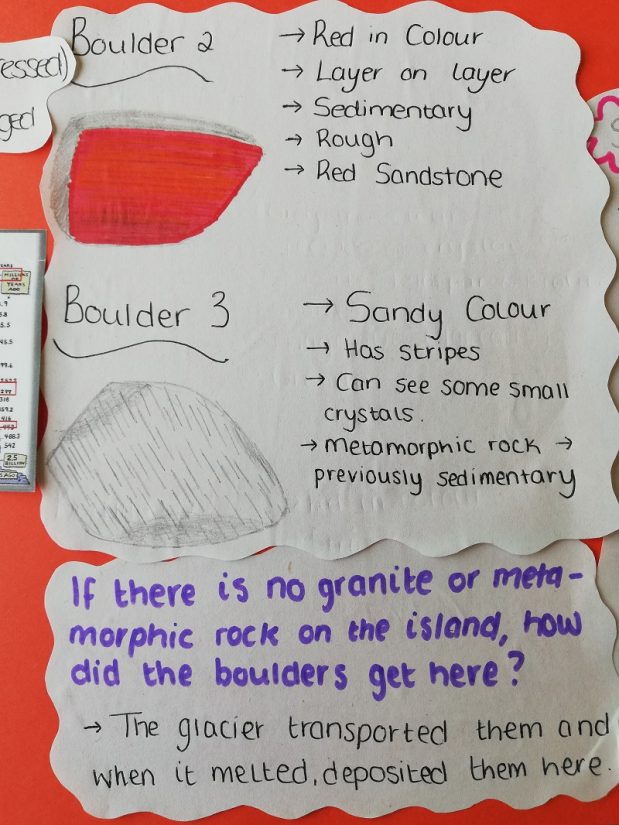 essed)
ged
Boulder 2
→ Red in Colour
→ Layer on layer
→ Sedimentary
→ Rough
→ Red Sandstone
MILLIONS
OF
YEARS
AGO
45.5
99.6
318
359.2
416
488.3
542
2.5
BILLION
Boulder 3
→ Sandy Colour
→ Has stripes
→ Can see some small
crystals.
→ metamorphic rock →
previously sedimentary
If there is no granite or meta-
morphic rock on the island, how
did the boulders get here?
→ The glacier transported them and
when it melted, deposited them here.